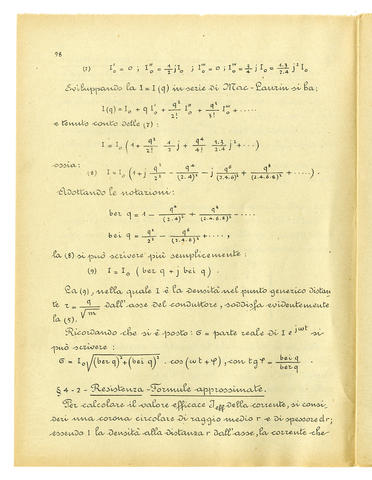 98
(7) I'₀ = 0 ; I''₀ = 1/2 j I₀ ; I'''₀ = 0 ; I''''₀ = 3/4 j I₀ = 1.3/2.4 j² I₀
Sviluppando la I = I(q) in serie di Mac-Laurin si ha:
I(q) = I₀ + q I'₀ + q²/2! I''₀ + q³/3! I'''₀ + .....
e tenuto conto delle (7) :
I = I₀ (1 + q²/2! 1/2 j + q⁴/4! 1.3/2.4 j² + ...)
ossia:
(8) I = I₀ (1 + j q²/2² - q⁴/(2.4)² - j q⁶/(2.4.6)² + q⁸/(2.4.6.8)² + ....) .
Adottando le notazioni:
ber q = 1 - q⁴/(2.4)² + q⁸/(2.4.6.8)² - ....
bei q = q²/2² - q⁶/(2.4.6)² + ....,
la (8) si può scrivere più semplicemente :
(9) I = I₀ (ber q + j bei q) .
La (9), nella quale I è la densità nel punto generico distan
te r = q/√m dall'asse del conduttore, soddisfa evidentemente
la (5).
Ricordando che si è posto: σ = parte reale di I e^jωt si
può scrivere :
σ = I₀ √(ber q)² + (bei q)² . cos (ωt + φ), con tg φ = bei q/ber q .
§ 4-2 - Resistenza - Formule approssimate.
Per calcolare il valore efficace I eff della corrente, si consi,
deri una corona circolare di raggio medio r e di spessore dr;
essendo I la densità alla distanza r dall'asse, la corrente che